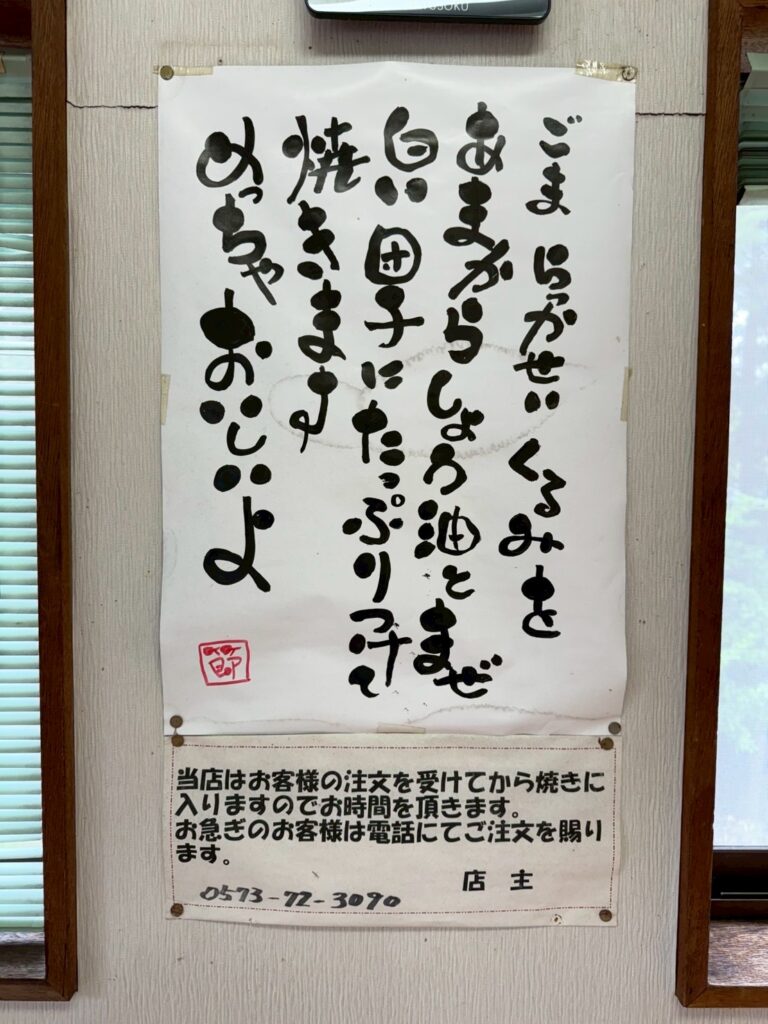 ごま らっかせい くるみを
あまからしょう油とまぜ
白い団子にたっぷりつけて
焼きます
めっちゃおいしいよ
節
当店はお客様の注文を受けてから焼きに
入りますのでお時間を頂きます。
お急ぎのお客様は電話にてご注文を賜り
ます。
店 主
0573-72-3090